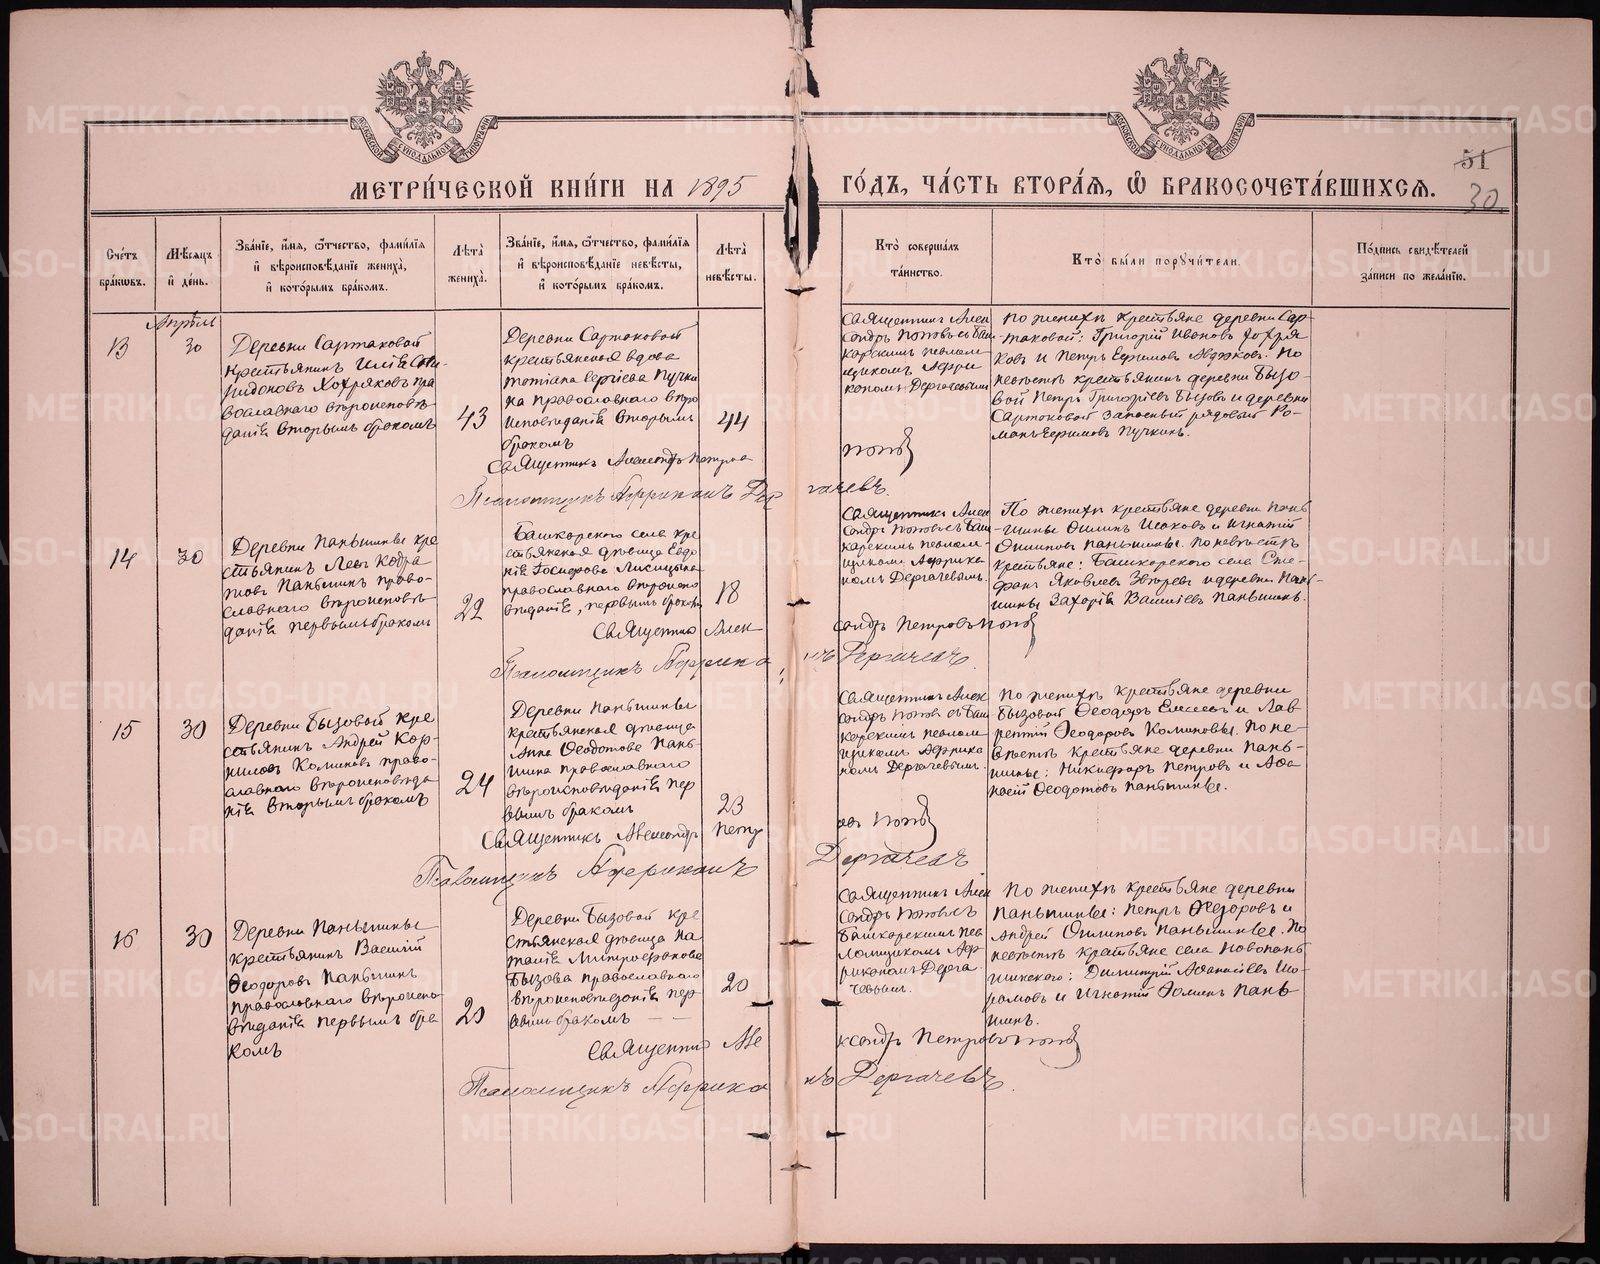 МЕТРИ́ЧЕСКОЙ КНИ́ГИ НА 1895
ГО́ДЪ, ЧА́СТЬ ВТОРА́Я, Ѡ БРАКОСОЧЕТА́ВШИХСЯ.
51
30
Сче́тъ бра́кѡвъ.
Мѣ́сяцъ и҆ де́нь.
Зва́нїе, и҆́мя, ѻ҆́тчество, фами́лїя
и҆ вѣроисповѣ́данїе жениха̀,
и҆ кото́рымъ бра́комъ.
Лѣта̀ жениха̀.
Зва́нїе, и҆́мя, ѻ҆́тчество, фами́лїя
и҆ вѣроисповѣ́данїе невѣ́сты,
и҆ кото́рымъ бра́комъ.
Лѣта̀ невѣ́сты.
Кто̀ соверша́лъ
та́инство.
Кто̀ бы́ли порꙋчи́тели.
По́дпись свидѣ́телей
за́писи по жела́нїю.
Апрѣль
13
30
Деревни Сартаковой
крестьянинъ Илія Спи-
ридоновъ Хохряковъ пра
вославнаго вѣроисповѣ-
данія вторымъ бракомъ
43
Деревни Сартаковой
крестьянская вдова
Татіана Сергіева Пучки
на православнаго вѣро
исповѣданія вторымъ
бракомъ
44
Священникъ Алек
сандръ Поповъ съ Баш
карскимъ псалом
щикомъ Афри
каномъ Дергачевымъ
По женихѣ крестьяне деревни Сар-
таковой: Григорій Ивановъ Хохря
ковъ и Петръ Ефимовъ По
невѣстѣ крестьянинъ деревни Бызо-
вой Петръ Григоріевъ Бызовъ и деревни
Сартаковой запасный рядовой Ро-
манъ Ефимовъ Пучкинъ.
Священникъ Александръ Петровъ Поповъ
Псаломщикъ Африканъ Дергачевъ.
14
30
Деревни Паньшины кре
стьянинъ Левъ Кодра
товъ Паньшинъ право-
славнаго вѣроисповѣ-
данія первымъ бракомъ
22
Башкарскаго села кре
стьянская дѣвица Евдо
кія Іосифова Лисицына
православнаго вѣроиспо
вѣданія, первымъ бракомъ
18
Священникъ Алек
сандръ Поповъ съ Баш
карскимъ псалом-
щикомъ Африка
номъ Дергачевымъ.
По женихѣ крестьяне деревни Пань
шины Филипъ Исаковъ и Игнатій
Филиповъ Паньшины. По невѣстѣ
крестьяне: Башкарскаго села Сте-
фанъ Яковлевъ Звѣревъ и деревни Пань-
шины Захарія Василіевъ Паньшинъ.
Священникъ Александръ Петровъ Поповъ
Псаломщикъ Африканъ Дергачевъ.
15
30
Деревни Бызовой кре
стьянинъ Андрей Кор-
ниловъ Коминовъ право-
славнаго вѣроисповѣда
нія вторымъ бракомъ
24
Деревни Паньшины
крестьянская дѣвица
Анна Ѳеодотова Пань-
шина православнаго
вѣроисповѣданія пер
вымъ бракомъ
23
Священникъ Алек
сандръ Поповъ съ Баш
карскимъ псалом
щикомъ Африка
номъ Дергачевымъ.
По женихѣ крестьяне деревни
Бызовой Ѳеодоръ Елисеевъ и Лав-
рентій Ѳеодоровъ Коминовы. По не-
вѣстѣ крестьяне деревни Пань-
шины: Никифоръ Петровъ и Аѳа
насій Ѳеодотовъ Паньшины.
Священникъ Александръ Петровъ Поповъ
Псаломщикъ Африканъ Дергачевъ
16
30
Деревни Паньшины
крестьянинъ Василій
Ѳеодоровъ Паньшинъ
православнаго вѣроиспо-
вѣданія первымъ бра
комъ
Деревни Бызовой кре
стьянская дѣвица На
талія Митрофанова
Бызова православнаго
вѣроисповѣданія пер
вымъ бракомъ
20
Священникъ Алек
сандръ Поповъ съ
Башкарскимъ пса
ломщикомъ Аф-
риканомъ Дерга
чевымъ.
По женихѣ крестьяне деревни
Паньшины: Петръ Ѳеодоровъ и
Андрей Филиповъ Паньшины. По
невѣстѣ крестьяне села Новопань
шинскаго: Димитрій Аѳанасіевъ
и Игнатій Паньшинъ.
Священникъ Александръ Петровъ Поповъ
Псаломщикъ Африканъ Дергачевъ.